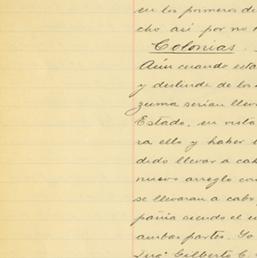 en los primeros de
cho así por no
Colonias.
Aún cuando esta
y deslinde de los
zuma serían llev
Estado, en vista
ra ello y haber
dido llevar a cab
nuevo arreglo con
se llevaran a cabo
pañía siendo el
ambas partes. Yo
Gilberto